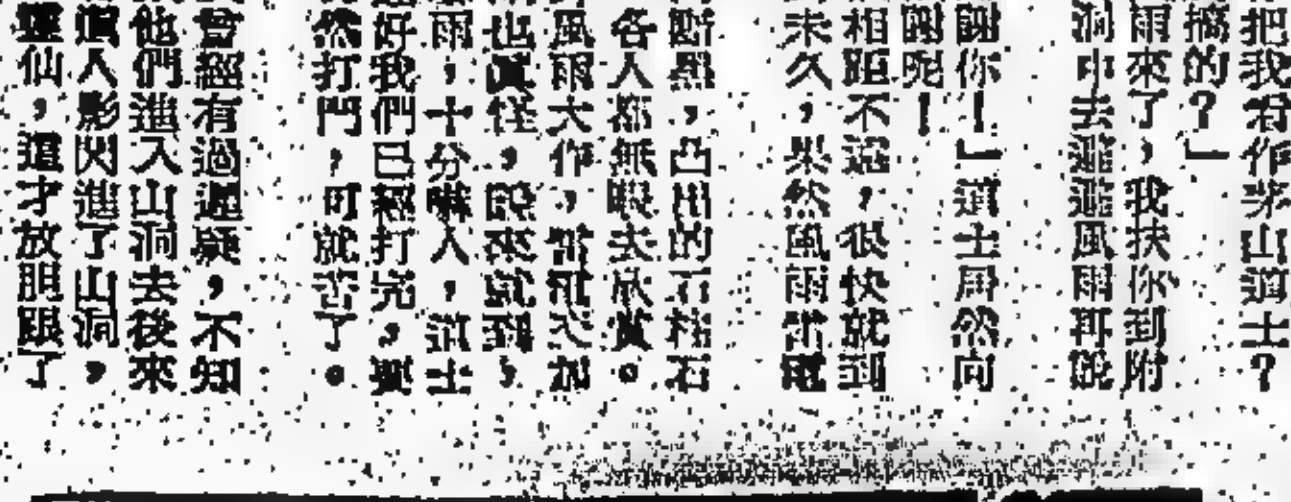 把我看作茅山道士?
搞的?」
雨來了,我扶你到附
洞中去避避風雨再說
謝你!」道士居然向
謝呢!
相距不遠,很快就到
未久,果然風雨雷電
斷黑,凸出的石柱石
各人都無暇去欣賞。
風雨大作,
也真怪,
雨,十分嚇人,道士
好我們已經打完,
然打鬥,可就苦了。
曾經有過遲疑,不知
他們進入山洞去後來
人影閃進了山洞,
仙,還才放胆跟了